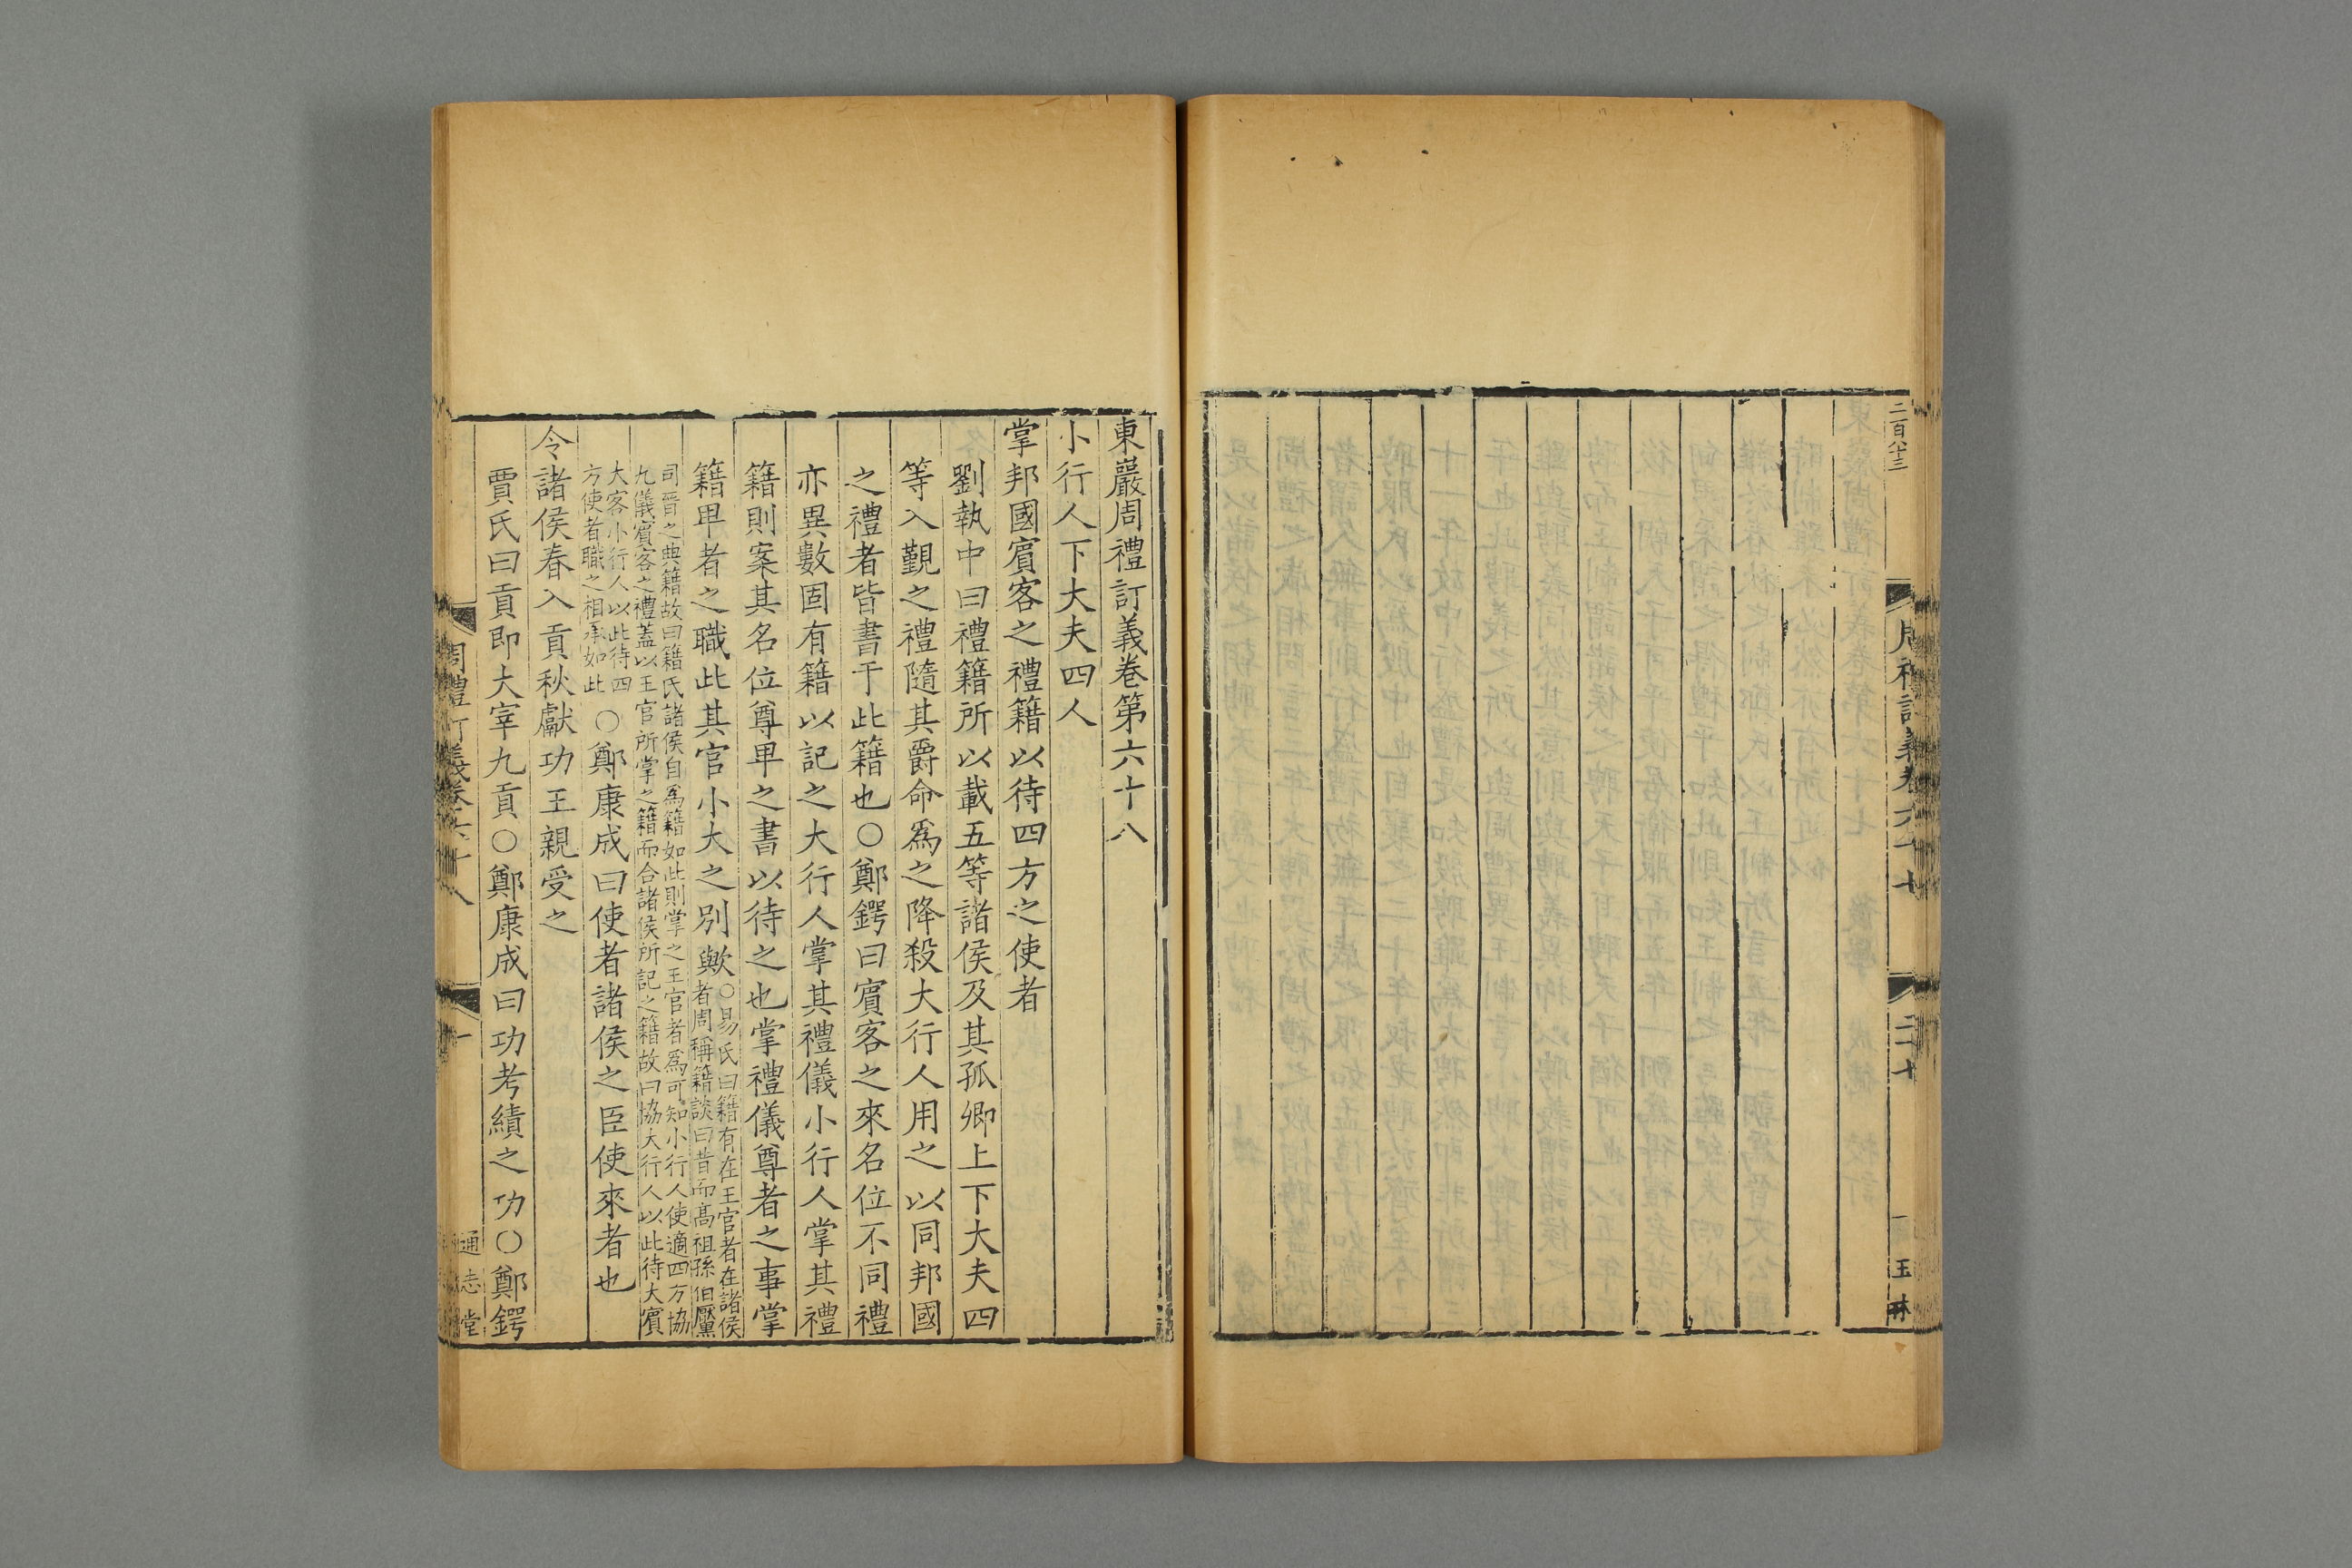 二百八十三
周禮訂義卷六十七
二十七
玉林
東巖周禮訂義卷第六十八
小行人下大夫四人
掌邦國賓客之禮籍以待四方之使者
劉執中曰禮籍所以載五等諸侯及其孤卿上下大夫四
等入覲之禮隨其爵命爲之降殺大行人用之以同邦國
之禮者皆書于此籍也〇鄭鍔曰賓客之來名位不同禮
亦異數固有籍以記之大行人掌其禮儀小行人掌其禮
籍則案其名位尊卑之書以待之也掌禮儀尊者之事掌
籍卑者之職此其官小大之別歟〇易氏曰籍有在王官者在諸侯
者周稱籍談曰昔而高祖孫伯黶
司晉之典籍故曰籍氏諸侯自爲籍如此則掌之王官者爲可知小行人使適四方協
九儀賓客之禮蓋以王官所掌之籍而合諸侯所記之籍故曰協大行人以此待大賓
大客小行人以此待四
方使者職之相承如此〇鄭康成曰使者諸侯之臣使來者也
令諸侯春入貢秋獻功王親受之
賈氏曰貢即大宰九貢〇鄭康成曰功考績之功〇鄭鍔
周禮訂義卷六十八
一
通志堂